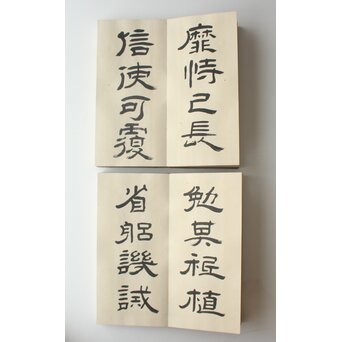 靡恃己長
信使可覆
勉其祗植
省躬譏誡